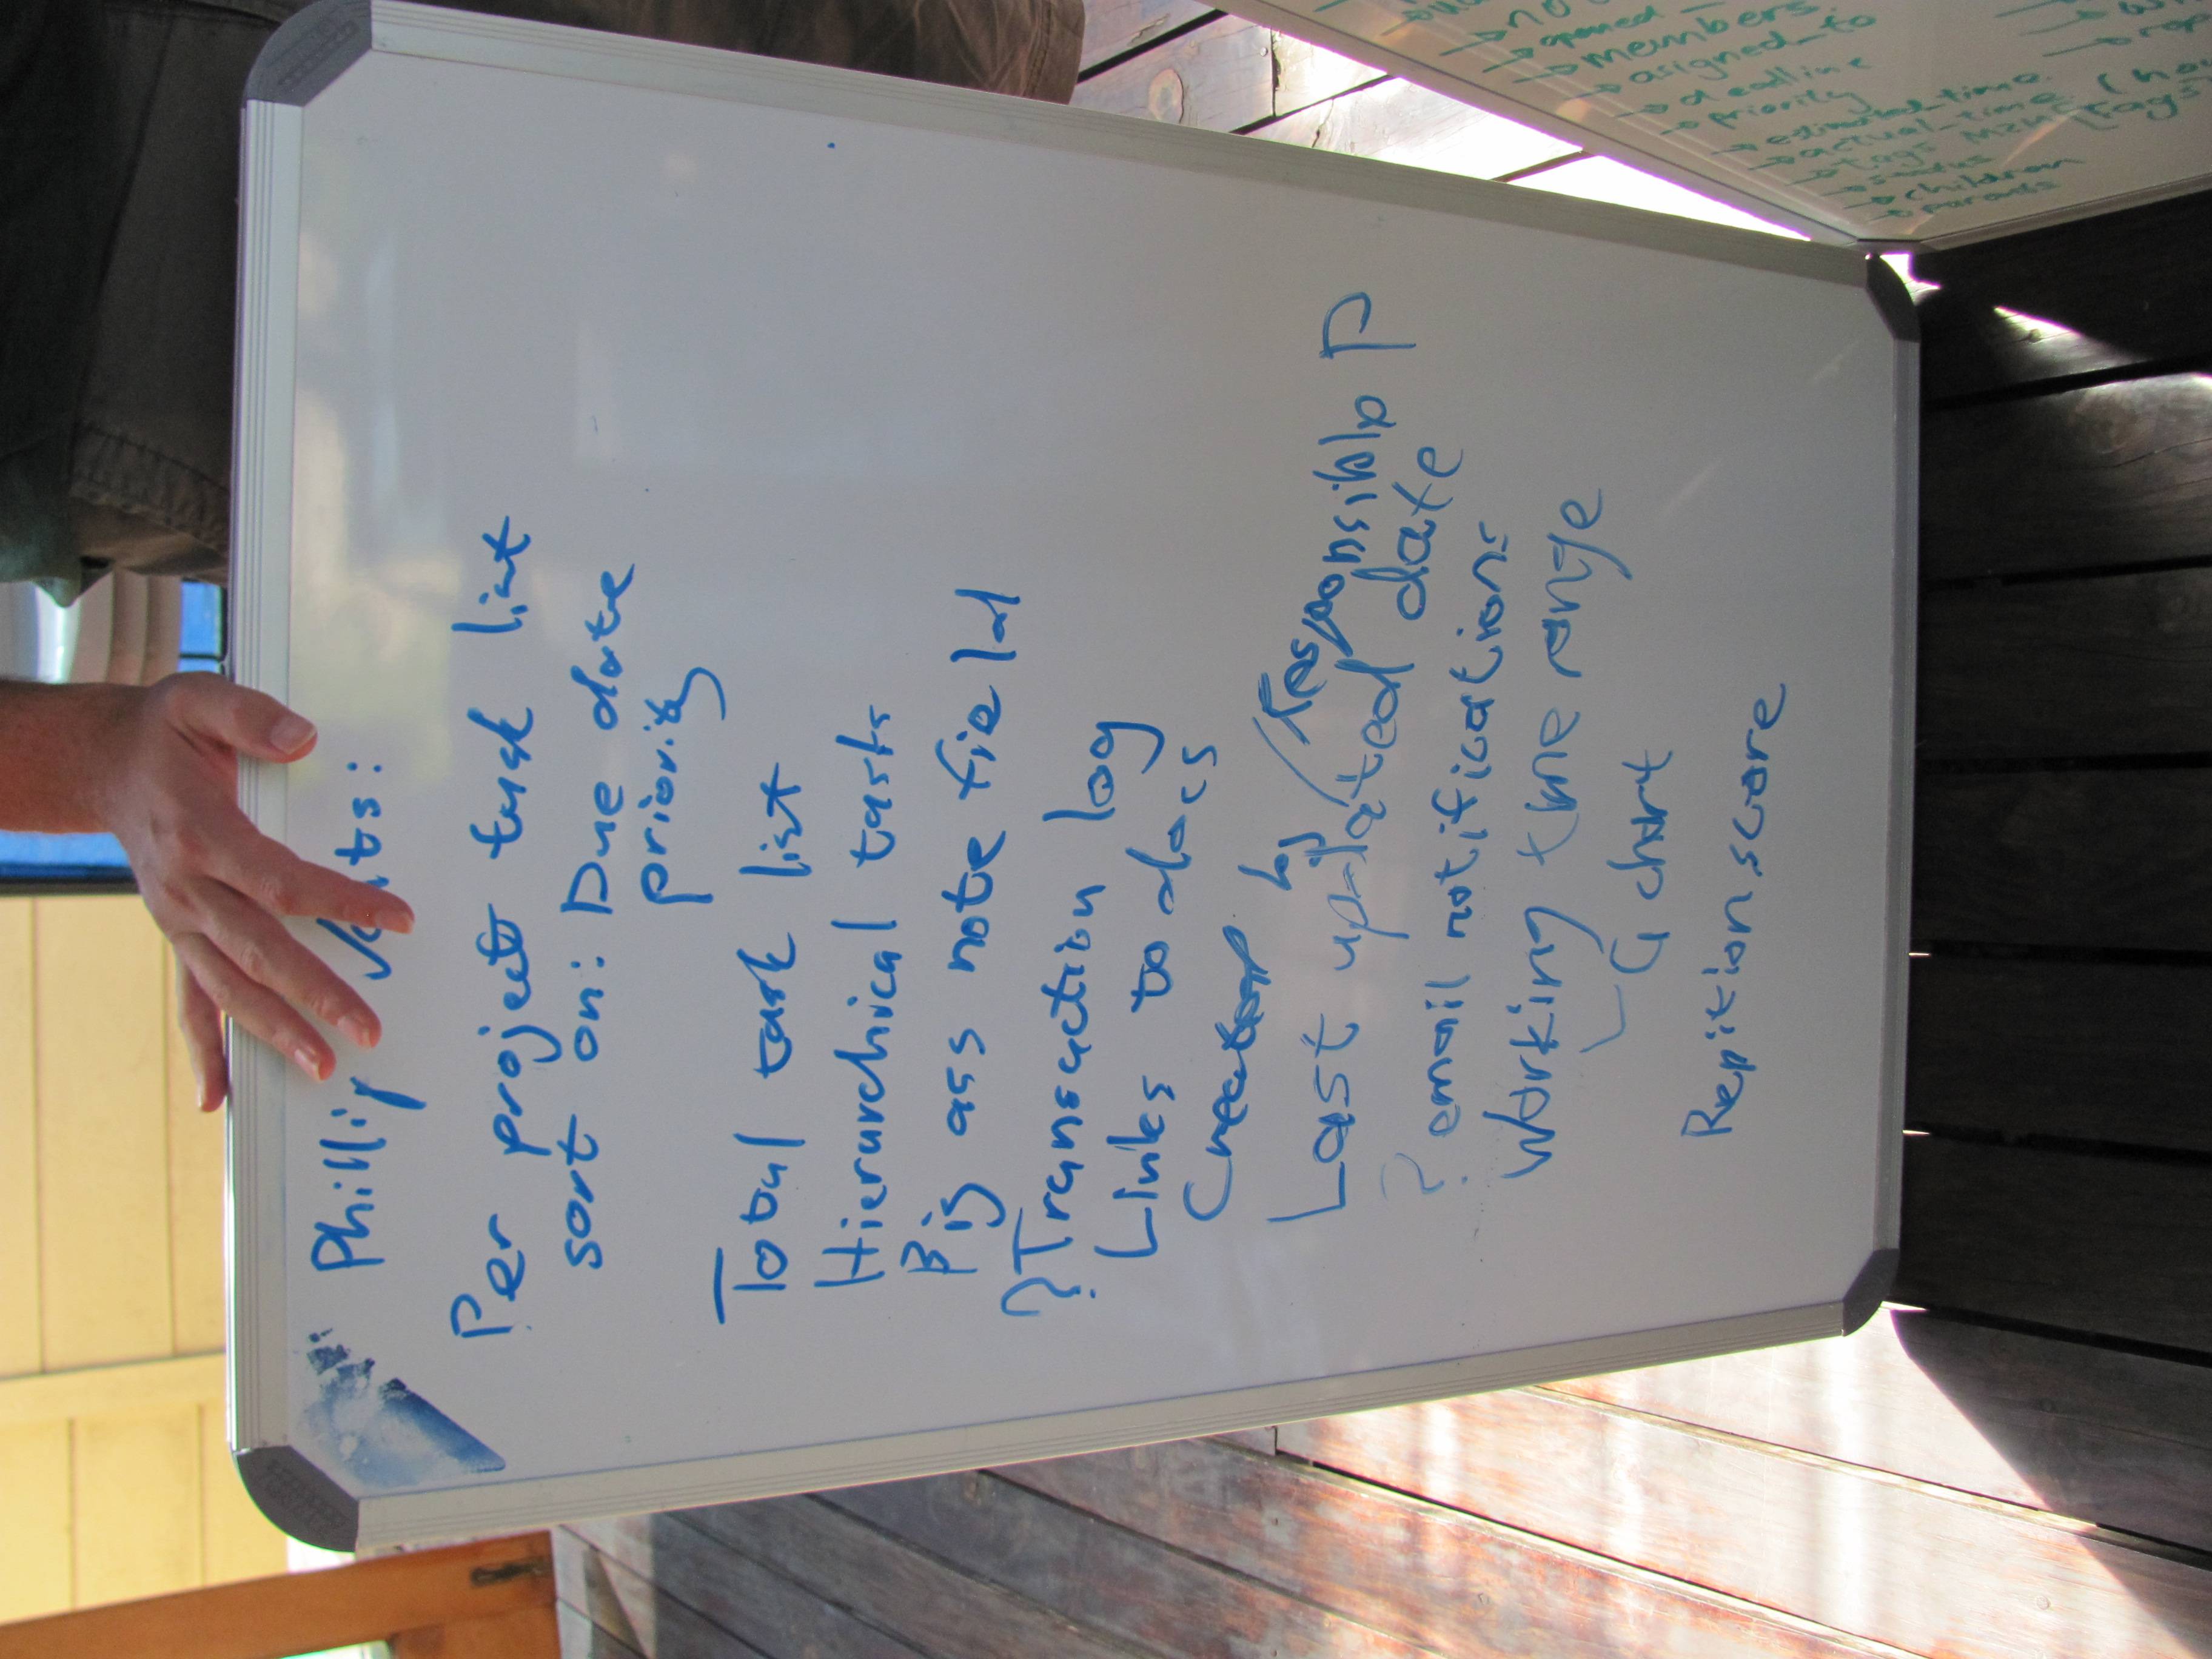 Phillip wants:
Per project task list
sort on: Due date
priority
Total task list
Hierarchical tasks
Big ass note field
? Transaction log
Links to docs
Created by / Responsible P
Last updated date
? email notifications
Working time range
G chart
Repition score
members
assigned_to
deadline
priority
estimated_time
actual_time
tags
status
children
parents